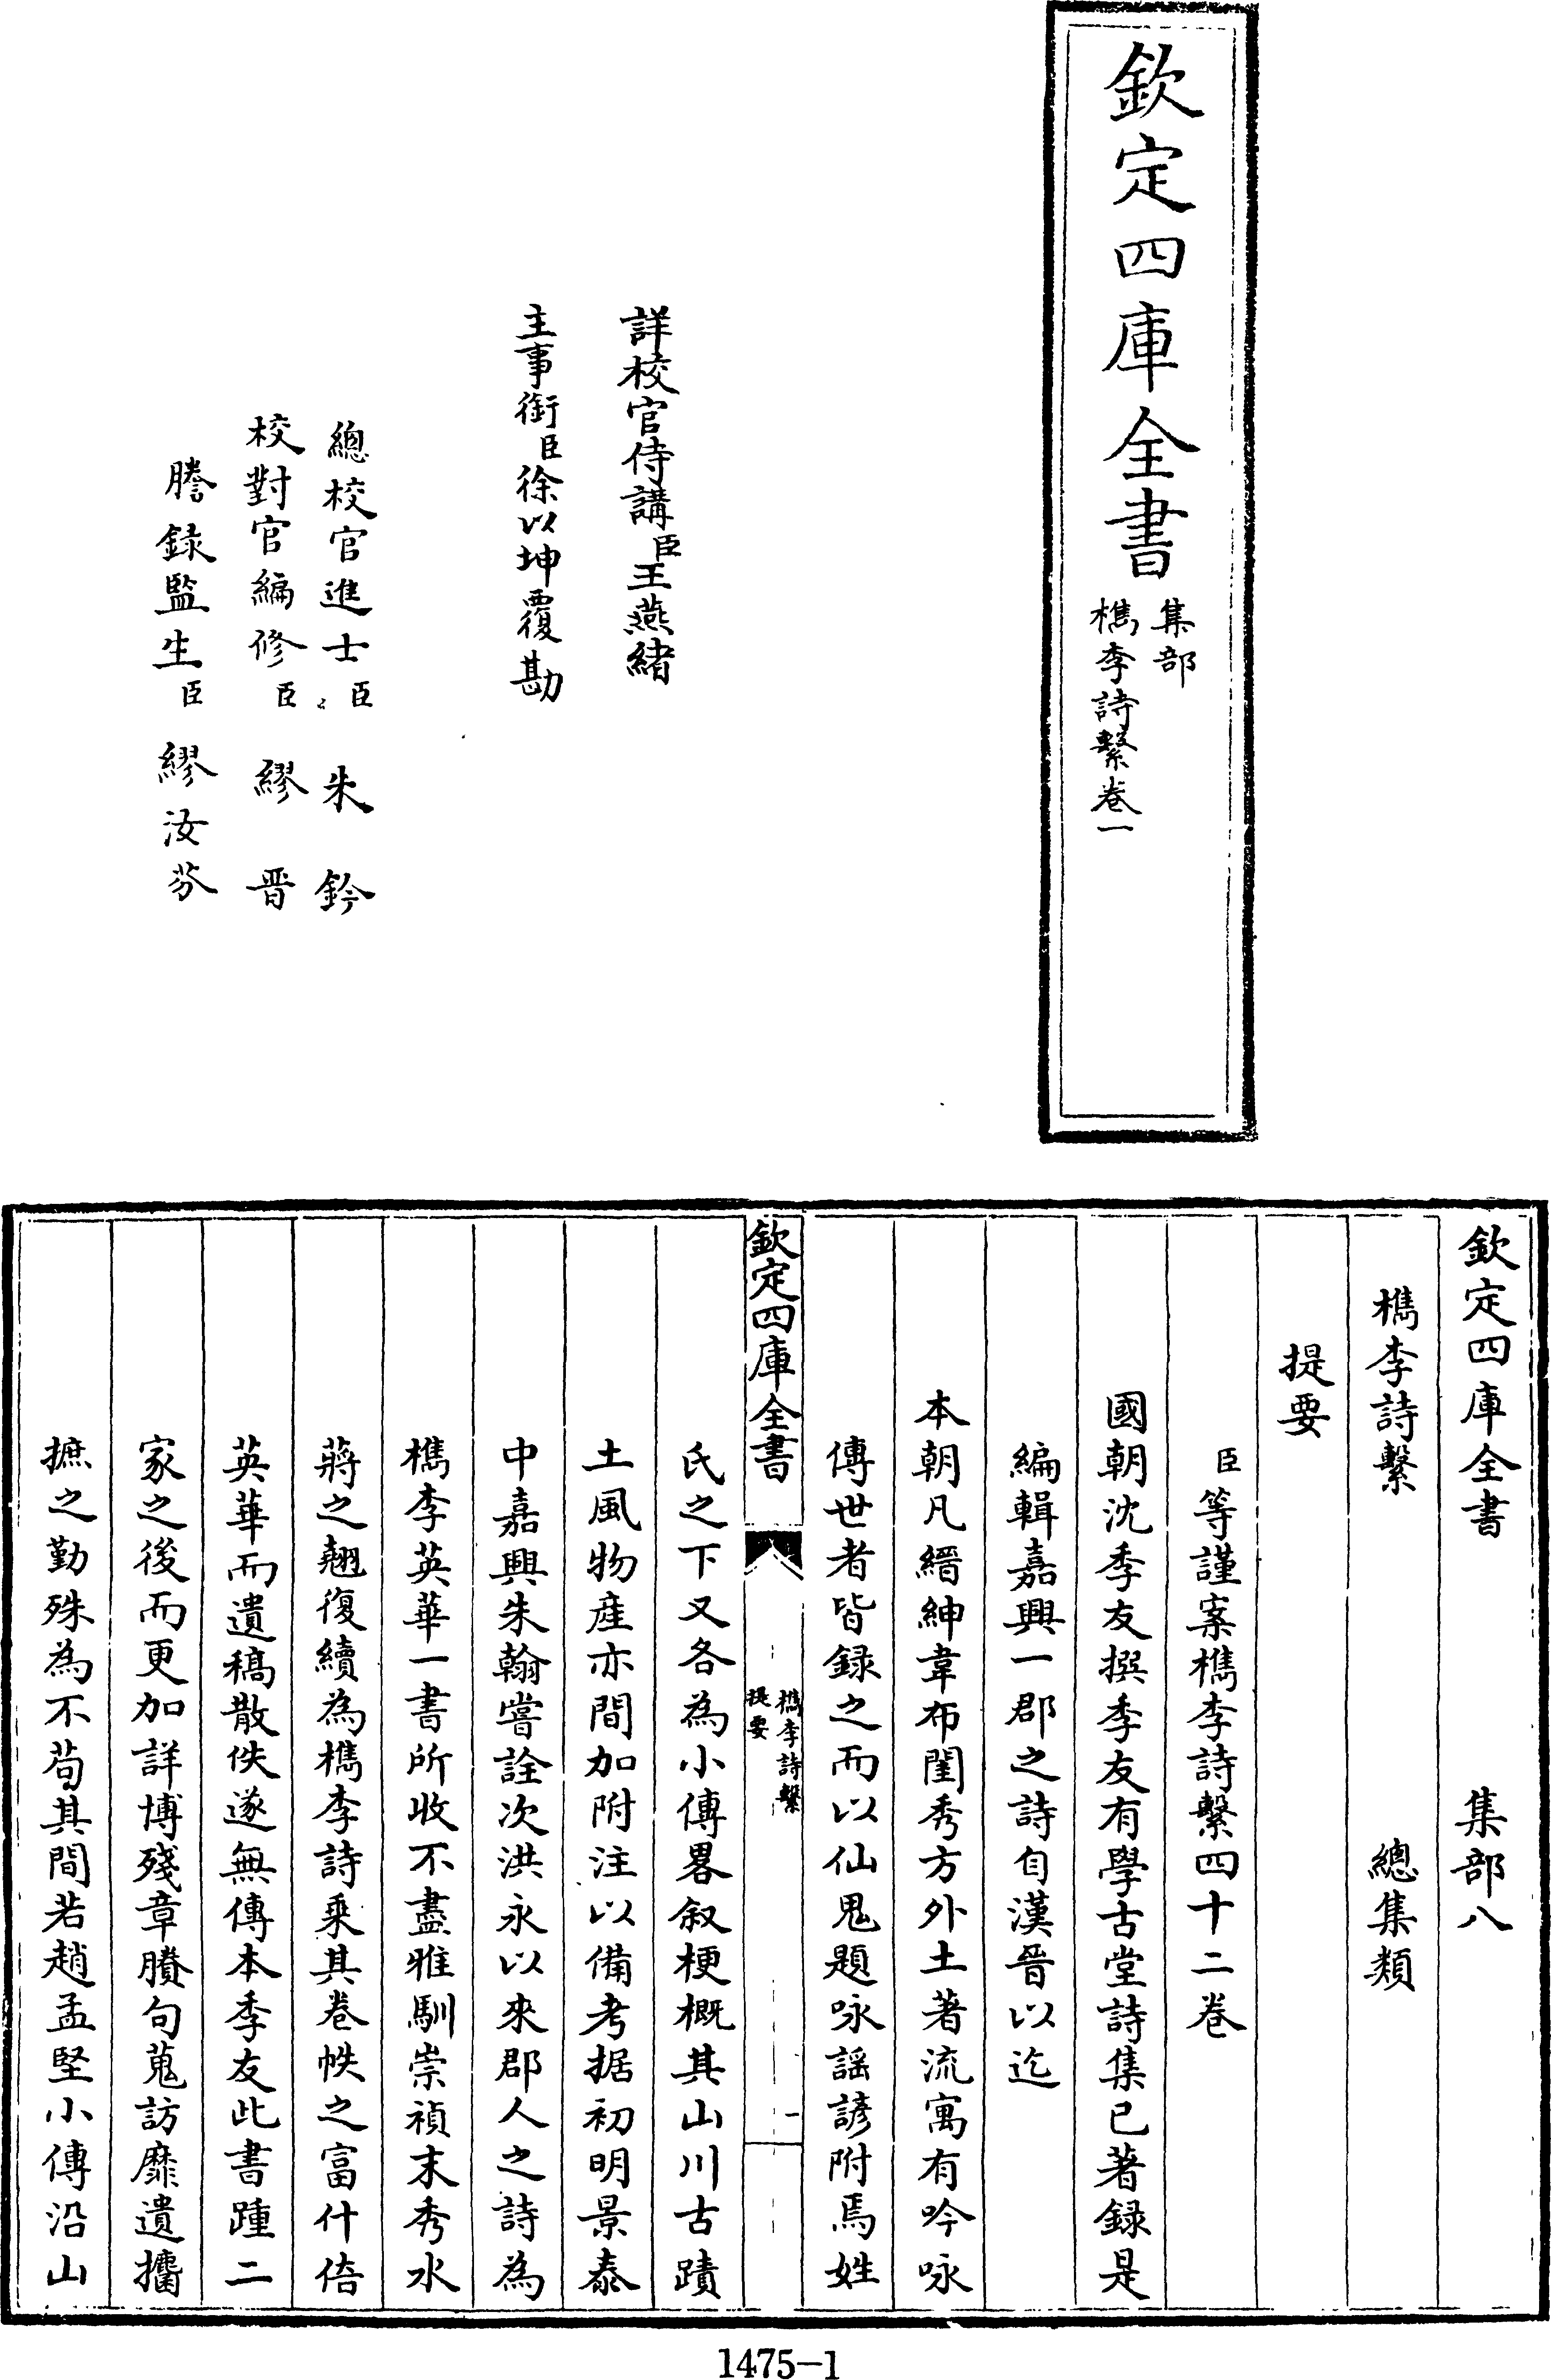 欽定四庫全書
集部
檇李詩繫卷一
詳校官侍講臣王燕緒
主事銜臣徐以坤覆勘
總校官進士臣朱鈐
校對官編修臣繆晋
謄録監生臣繆汝芬
欽定四庫全書 集部八
檇李詩繫 總集類
提要
臣等謹案檇李詩繫四十二卷
國朝沈季友撰季友有學古堂詩集已著録是
編輯嘉興一郡之詩自漢晉以迄
本朝凡縉紳韋布閨秀方外土著流寓有吟咏
傳世者皆録之而以仙鬼題咏謡諺附焉姓
欽定四庫全書
檇李詩繫
提要
一
氏之下又各為小傳畧叙梗概其山川古蹟
土風物産亦間加附注以備考据初明景泰
中嘉興朱翰嘗詮次洪永以來郡人之詩為
檇李英華一書所收不盡雅馴崇禎末秀水
蔣之翹復續為檇李詩乗其卷帙之富什倍
英華而遺稿散佚遂無傳本季友此書踵二
家之後而更加詳博殘章賸句蒐訪靡遺攟
摭之勤殊為不茍其間若趙孟堅小傳沿山
1475-1